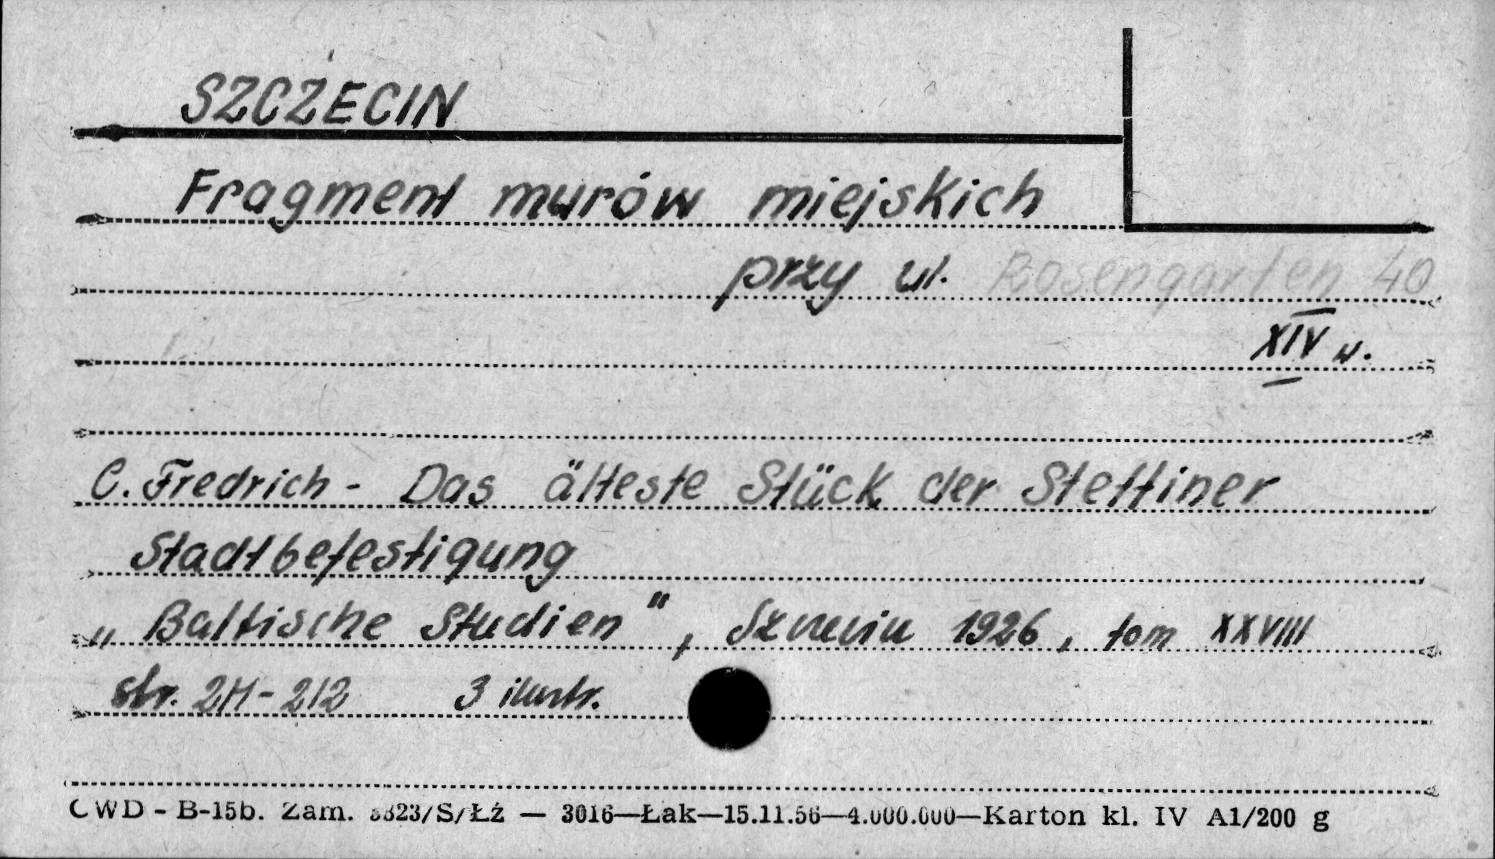 SZCZECIN
Fragment murów miejskich
przy ul. Rosengarten 40
XIV w.
C. Fredrich - Das älteste Stück der Stettiner
Stadtbefestigung
„Baltische Studien", Szczecin 1926, tom XXVIII
str. 211-212 3 ilustr.
CWD - B-15b. Zam. 3823/S/Łź — 3016—Łak—15.11.56—4.000.000—Karton kl. IV A1/200 g